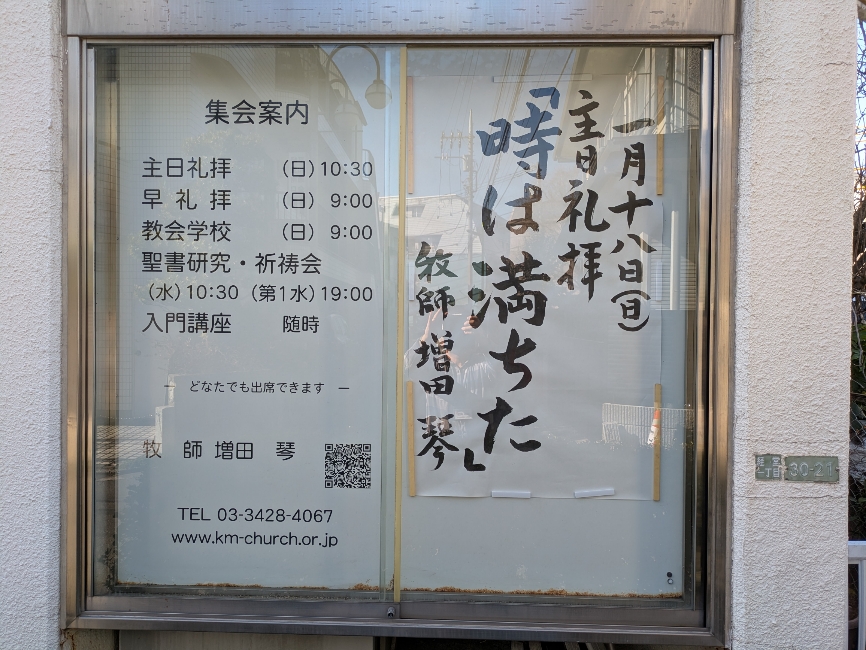 集会案内
主日礼拝 （日）10:30
早 礼 拝 （日） 9:00
教会学校 （日） 9:00
聖書研究・祈祷会
（水）10:30（第1水）19:00
入門講座 随時
─ どなたでも出席できます ─
牧 師 増田 琴
TEL 03-3428-4067
www.km-church.or.jp
一月十八日（日）
主日礼拝
「時は満ちた」
牧師 増田 琴
30-21